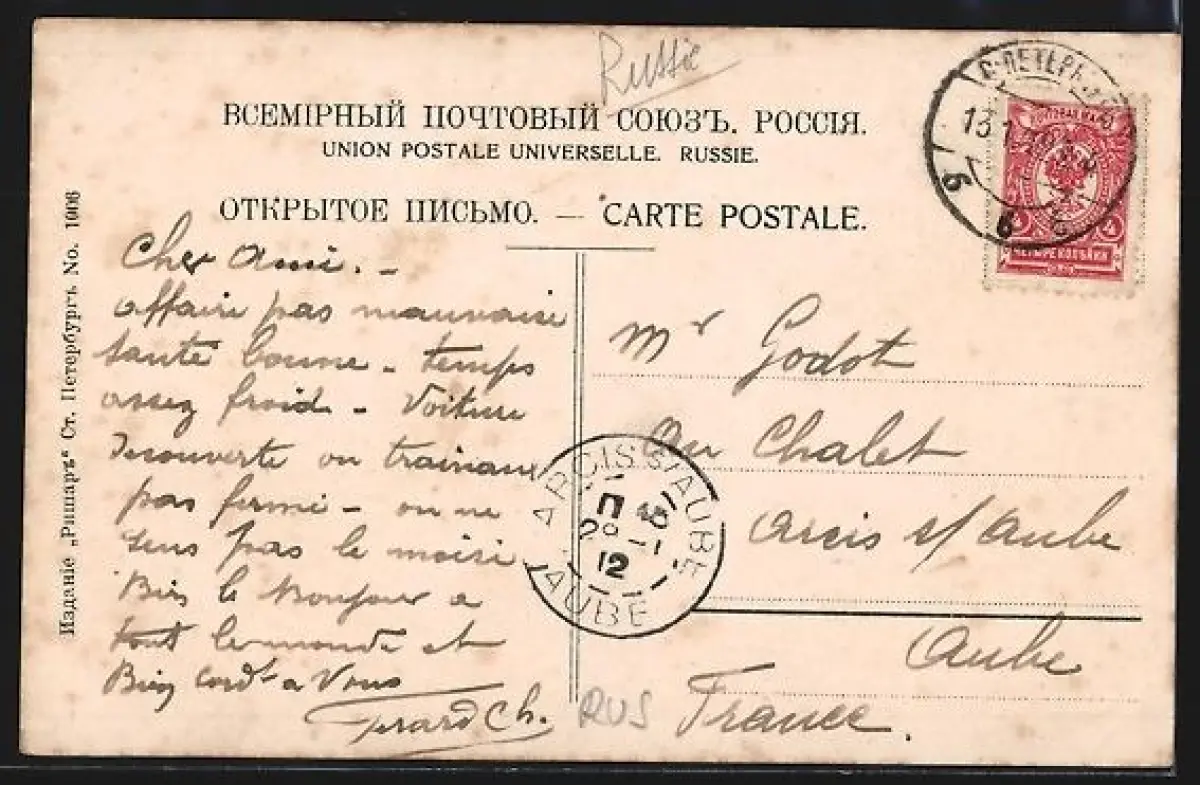 Russie
ВСЕМІРНЫЙ ПОЧТОВЫЙ СОЮЗЪ. РОССІЯ.
UNION POSTALE UNIVERSELLE. RUSSIE.
ОТКРЫТОЕ ПИСЬМО. — CARTE POSTALE.
Изданіе „Ришаръ“ Ст. Петербургъ. No. 1906
С-ПЕТЕРБ
13
ПОЧТОВАЯ МАРКА
4
ЧЕТЫРЕ КОПѢЙКИ
Cher Ami. -
affaire pas mauvaise
santé bonne - temps
assez froid - Voiture
decouverte ou traineau
pas fermé - on ne
sens pas le moisi
Bien le bonjour a
tout le monde et
Bien cordt a Vous
Ch.
Mr Godot
Au Chalet
Arcis s/ Aube
Aube
France.
ARCIS S/ AUBE
12
AUBE
RUS